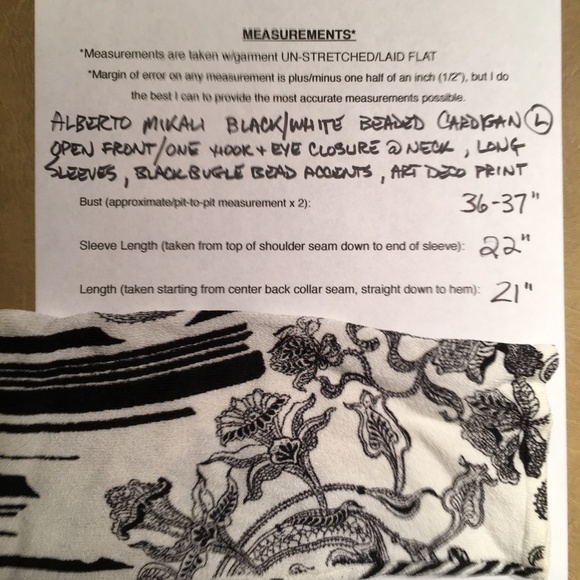 MEASUREMENTS*
*Measurements are taken w/garment UN-STRETCHED/LAID FLAT
*Margin of error on any measurement is plus/minus one half of an inch (1/2"), but I do
the best I can to provide the most accurate measurements possible.
ALBERTO MIKALI BLACK/WHITE BEADED CARDIGAN L
OPEN FRONT/ONE HOOK + EYE CLOSURE @ NECK, LONG
SLEEVES, BLACK BUGLE BEAD ACCENTS, ART DECO PRINT
Bust (approximate/pit-to-pit measurement x 2): 36-37"
Sleeve Length (taken from top of shoulder seam down to end of sleeve): 22"
Length (taken starting from center back collar seam, straight down to hem): 21"